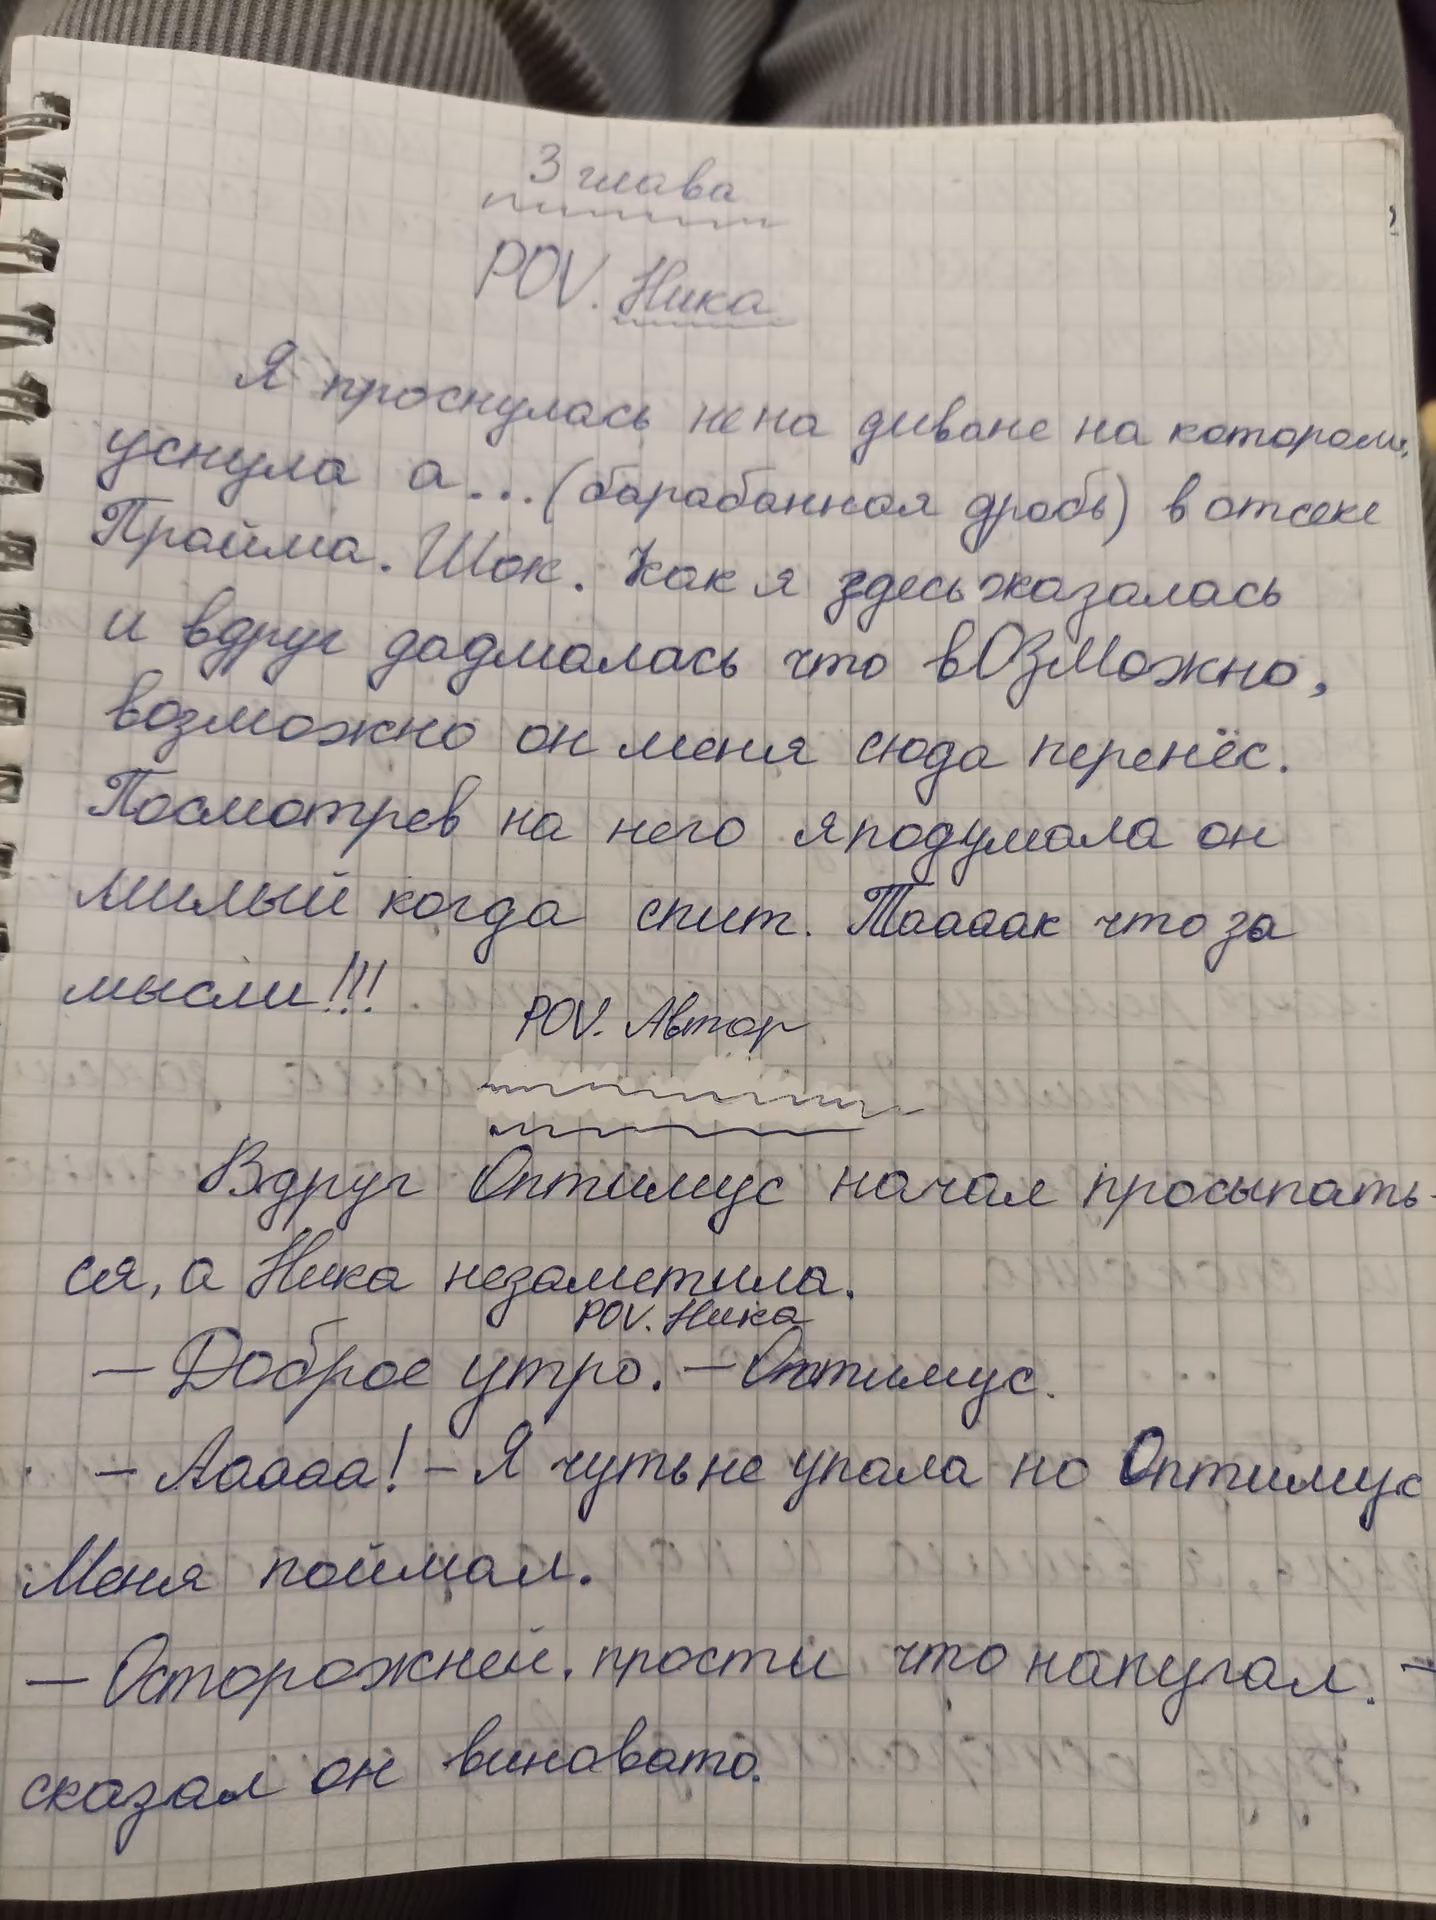 3 глава
POV. Ника
Я проснулась не на диване на котором
уснула а...(барабанная дробь) в отсеке
Прайма. Шок. Как я здесь оказалась
и вдруг дадмалась что вОЗМОжно,
возможно он меня сюда перенёс.
Посмотрев на него я подумала он
милый когда спит. Тааааак что за
мысли!!!
POV. Автор
Вдруг Оптимус начал просыпать-
ся, а Ника незаметила.
POV. Ника
— Доброе утро. — Оптимус.
— Ааааа! – Я чуть не упала но Оптимус
Меня поймал.
— Осторожней, прости что напугал. –
сказал он виновато.